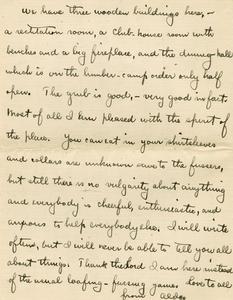 We have three wooden buildings here, -
a recitation room, a Club-house room with
benches and a big fireplace, and the dining hall
which is on the lumber-camp order only half
open. The grub is good, - very good in fact.
Most of all I am pleased with the spirit of
the place. You can eat in your shirtsleeves
and collars are unknown save to the fussers,
but still there is no vulgarity about anything
and everybody is cheerful, enthusiastic, and
anxious to help everybody else. I will write
often, but I will never be able to tell you all
about things. Thank the Lord I am here instead
of the usual loafing - fussing games. Love to all
from Aldo